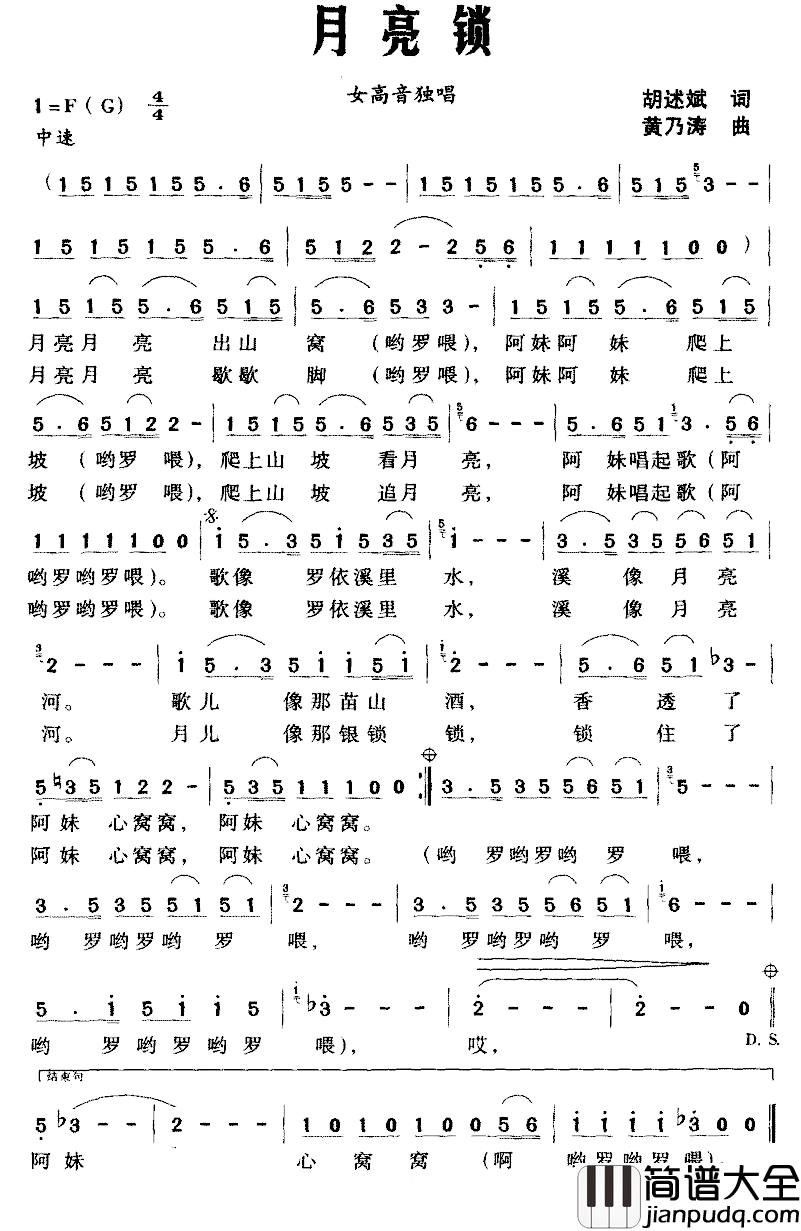 月亮锁
女高音独唱
1=F(G) 4/4
胡述斌 词
中速
黄乃涛 曲
(1 5 1 5 1 5 5. 6 | 5 1 5 5 - - | 1 5 1 5 1 5 5. 6 | 5 1 5 5 3 - - |
1 5 1 5 1 5 5. 6 | 5 1 2 2 - 2 5 6 | 1 1 1 1 1 0 0) |
1 5 1 5 5. 6 5 1 5 | 5. 6 5 3 3 - | 1 5 1 5 5. 6 5 1 5 |
月亮月 亮 出山 窝 (哟罗喂), 阿妹阿 妹 爬上
月亮月 亮 歇歇 脚 (哟罗喂), 阿妹阿 妹 爬上
5. 6 5 1 2 2 - | 1 5 1 5 5. 6 5 3 5 | 5 6 - - - | 5. 6 5 1 1 3. 5 6 |
坡 (哟罗 喂), 爬上山 坡 看月 亮, 阿 妹唱起歌(阿
坡 (哟罗 喂), 爬上山 坡 追月 亮, 阿 妹唱起歌(阿
1 1 1 1 1 0 0 | 1 5. 3 5 1 5 3 5 | 5 1 - - - | 3. 5 3 5 5 6 5 1 |
哟罗哟罗喂)。 歌像 罗依溪里 水, 溪 像月亮
哟罗哟罗喂)。 歌像 罗依溪里 水, 溪 像月亮
3 2 - - - | 1 5. 3 5 1 1 5 1 | 1 2 - - - | 5. 6 5 1 b3 - |
河。 歌儿 像那苗山 酒, 香 透了
河。 月儿 像那银锁 锁, 锁 住了
5 ♮3 5 1 2 2 - | 5 3 5 1 1 0 0 :| 3. 5 3 5 5 6 5 1 | 3 5 - - - |
阿妹 心窝窝, 阿妹 心窝窝。
阿妹 心窝窝, 阿妹 心窝窝。 (哟 罗哟罗哟 罗 喂,
3. 5 3 5 5 1 5 1 | 3 2 - - - | 3. 5 3 5 5 6 5 1 | 1 6 - - - |
哟 罗哟罗哟 罗 喂, 哟 罗哟罗哟 罗 喂,
5. 1 5 1 1 5 | 1 b3 - - - | 2 - - - | 2 - - 0 ||
哟 罗 哟罗哟罗 喂), 哎, D.S.
结束句
5 b3 - - | 2 - - - | 1 0 1 0 1 0 0 5 6 | 1 1 1 1 b3 0 ||
阿妹 心 窝 窝 (啊 哟罗哟罗 喂)。
简谱大全
jianpudq.com